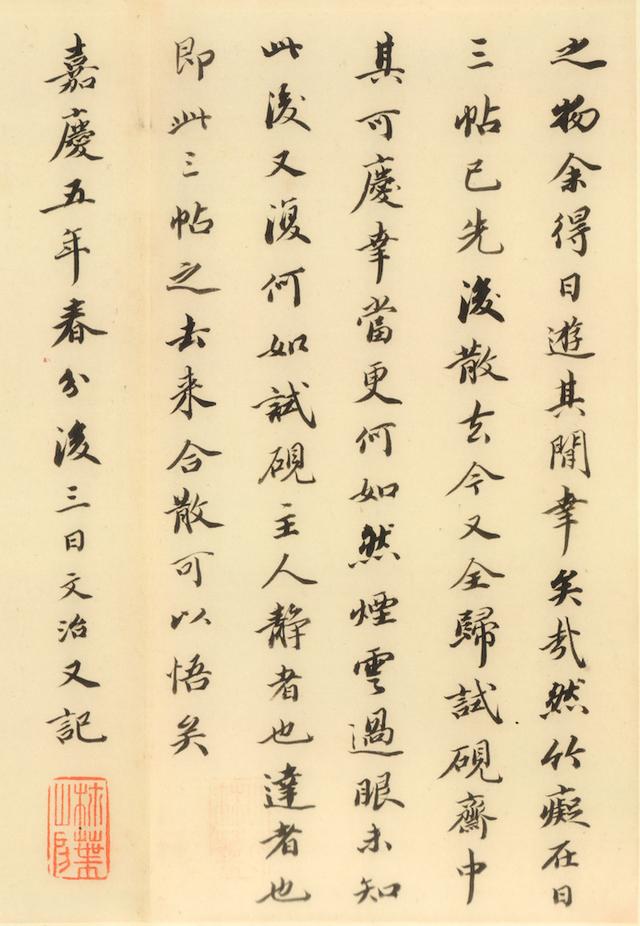 之物余得日遊其間幸矣哉然竹癡在日
三帖已先後散去今又全歸試硯齋中
其可慶幸當更何如然煙雲過眼未知
此後又復何如試硯主人靜者也達者也
即此三帖之去来合散可以悟矣
嘉慶五年春分後三日文治又記